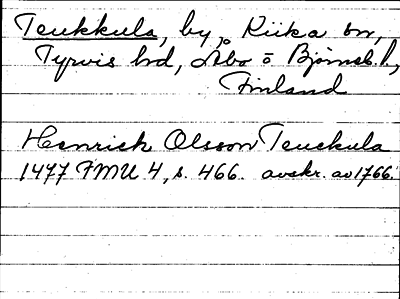 Teukkula, by, Kiika sn,
Tyrvis hd, Åbo o Björneb. l,
Finland
Henrick Olsson Teuckula
1477 FMU 4, s. 466. avskr. av 1766.